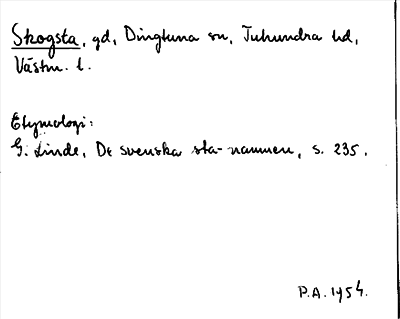 Skogsta, gd, Dingtuna sn, Tuhundra hd,
Västm. l.
Etymologi:
G. Linde, De svenska sta-namnen, s. 235.
P.A. 1954.